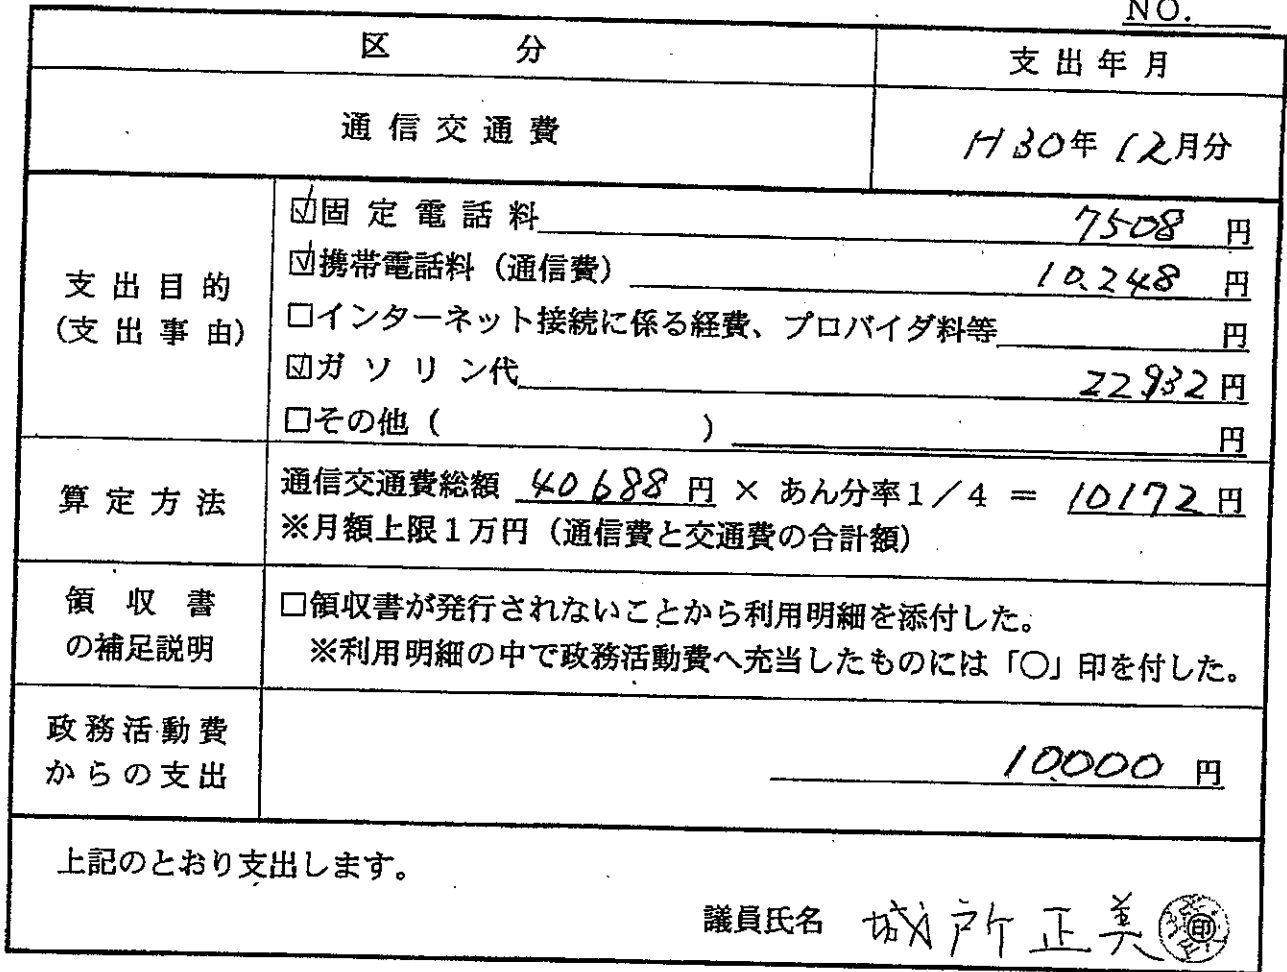 NO.
区 分 支出年月
通信交通費 H30年12月分
支出目的
(支出事由)
☑固定電話料 7508 円
☑携帯電話料（通信費） 10,248 円
□インターネット接続に係る経費、プロバイダ料等 円
☑ガソリン代 22,932円
□その他（ ） 円
算定方法
通信交通費総額 40688 円 × あん分率1／4 ＝ 10172円
※月額上限1万円（通信費と交通費の合計額）
領収書
の補足説明
□領収書が発行されないことから利用明細を添付した。
※利用明細の中で政務活動費へ充当したものには「○」印を付した。
政務活動費
からの支出
10,000 円
上記のとおり支出します。
議員氏名 城戸所正美 印